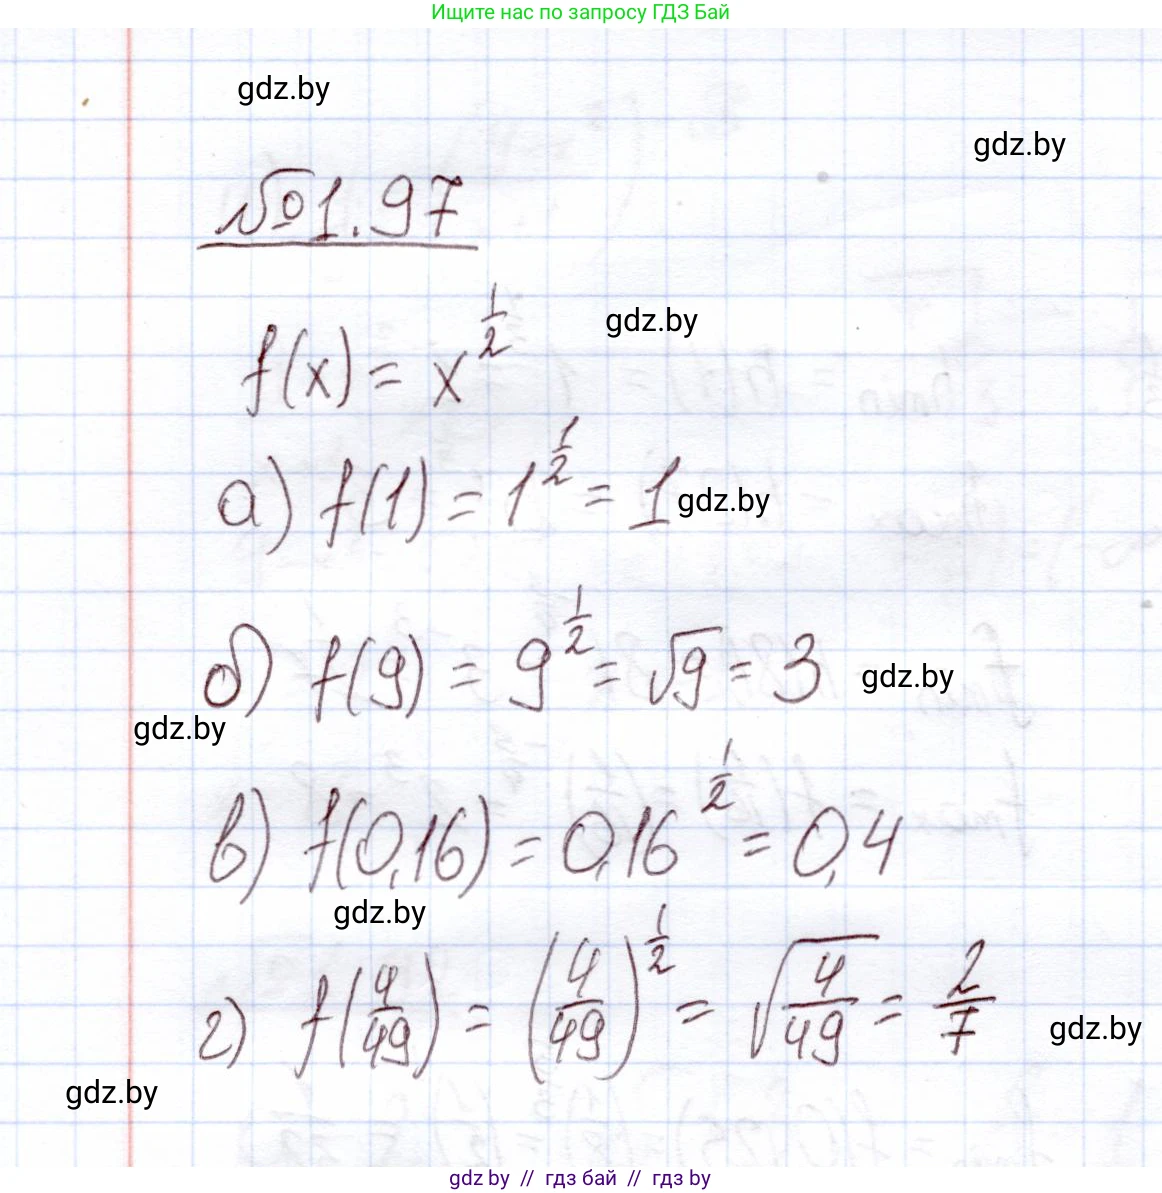 Ищите нас по запросу ГДЗ Бай
gdz.by
gdz.by
№1.97
f(x) = x^{1/2}
gdz.by
а) f(1) = 1^{1/2} = 1
gdz.by
б) f(9) = 9^{1/2} = √9 = 3
gdz.by
gdz.by
в) f(0,16) = 0,16^{1/2} = 0,4
gdz.by
г) f(4/49) = (4/49)^{1/2} = √(4/49) = 2/7
gdz.by
gdz.by
gdz.by // гдз бай // gdz.by